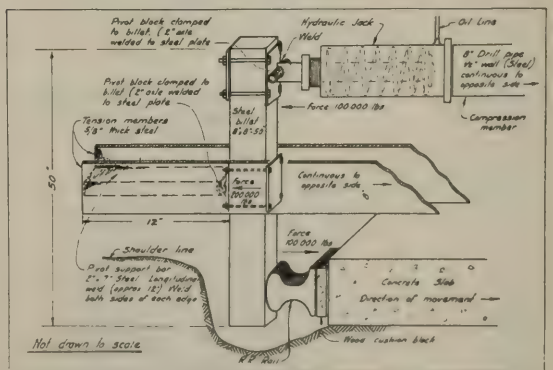 Pivot block clamped
to billet. (2" axle
welded to steel plate
Weld
Hydraulic Jack
Oil Line
8" Drill pipe
½" wall (Steel)
continuous to
opposite side
Compression
member
Force 100 000 lbs
Pivot block clamped to
billet (2" axle welded
to steel plate
Steel
billet
Tension members
5/8" thick steel
50"
Force
200 000
lbs
Continuous to
opposite side
12"
Force
100 000 lbs
Shoulder line
Pivot support bar
Steel Longitudinal
weld (approx 12") Weld
both sides of each edge
Concrete Slab
Direction of movement
Wood cushion block
Rail
Not drawn to scale